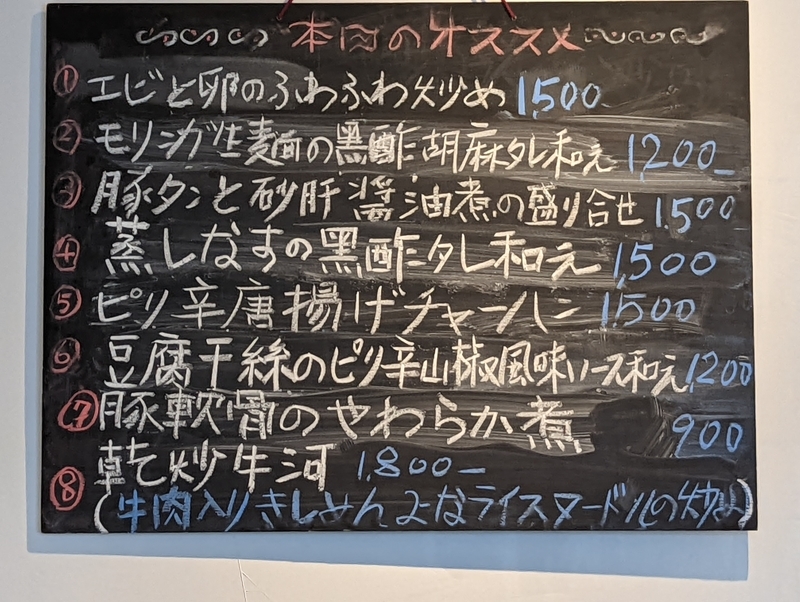 本日のオススメ
① エビと卵のふわふわ炒め 1,500
② モリンガ生麺の黒酢胡麻タレ和え 1,200-
③ 豚タンと砂肝醤油煮の盛り合せ 1,500
④ 蒸しなすの黒酢タレ和え 1,500
⑤ ピリ辛唐揚げチャーハン 1,500
⑥ 豆腐干絲のピリ辛山椒風味ソース和え 1,200
⑦ 豚軟骨のやわらか煮 900
⑧ 乾炒牛河 1,800-
(牛肉入りきしめんみたいなライスヌードルの炒め)